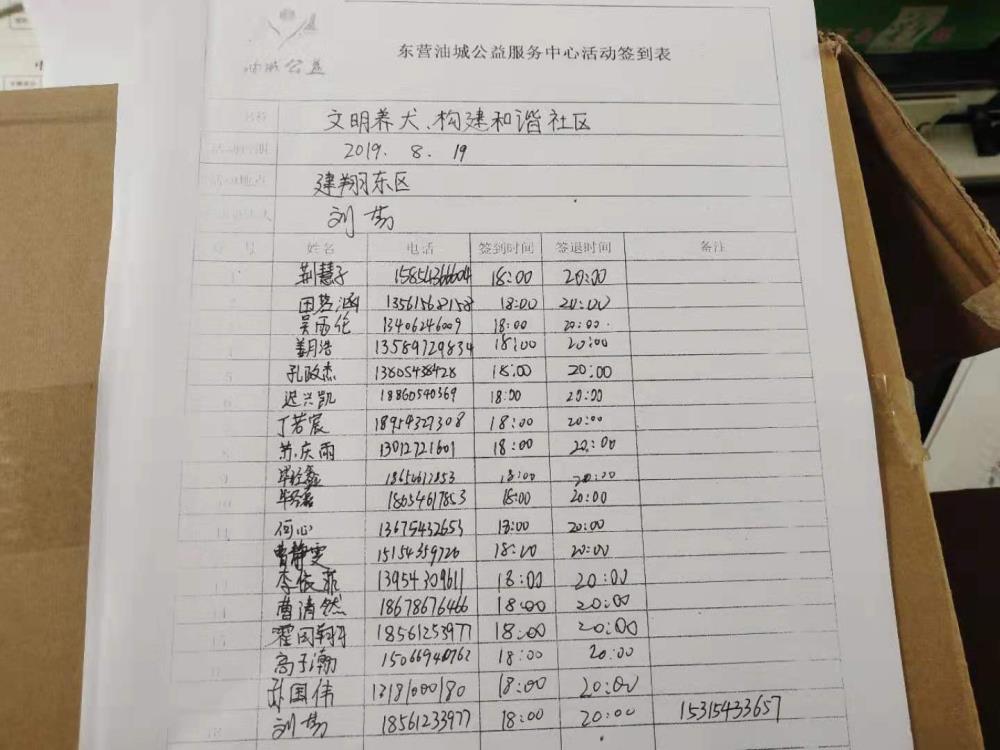 油城公益
东营油城公益服务中心活动签到表
名称 文明养犬、构建和谐社区
2019. 8. 19
活动地点 建翔东区
刘易
号 姓名 电话 签到时间 签退时间 备注
1 荆慧子 15854366604 18:00 20:00
2 田茗涵 13561568158 18:00 20:00
吴雨伦 13406246009 18:00 20:00
4 姜月浩 13589729834 18:00 20:00
5 孔政杰 13805438428 18:00 20:00
6 迟兴凯 18860540369 18:00 20:00
丁若宸 18954327308 18:00 20:00
8 苏庆雨 13012721601 18:00 20:00
9 18654617853 18:00 20:00
10 18654617853 18:00 20:00
11 何心 13675432653 18:00 20:00
曹静雯 15154359726 18:00 20:00
13 李依菲 13954309611 18:00 20:00
14 曹清然 18678676466 18:00 20:00
15 霍国翔 18561253977 18:00 20:00
高子瀚 15066940762 18:00 20:00
孙国伟 13181000180 18:00 20:00
18 刘易 18561233977 18:00 20:00 15315433657